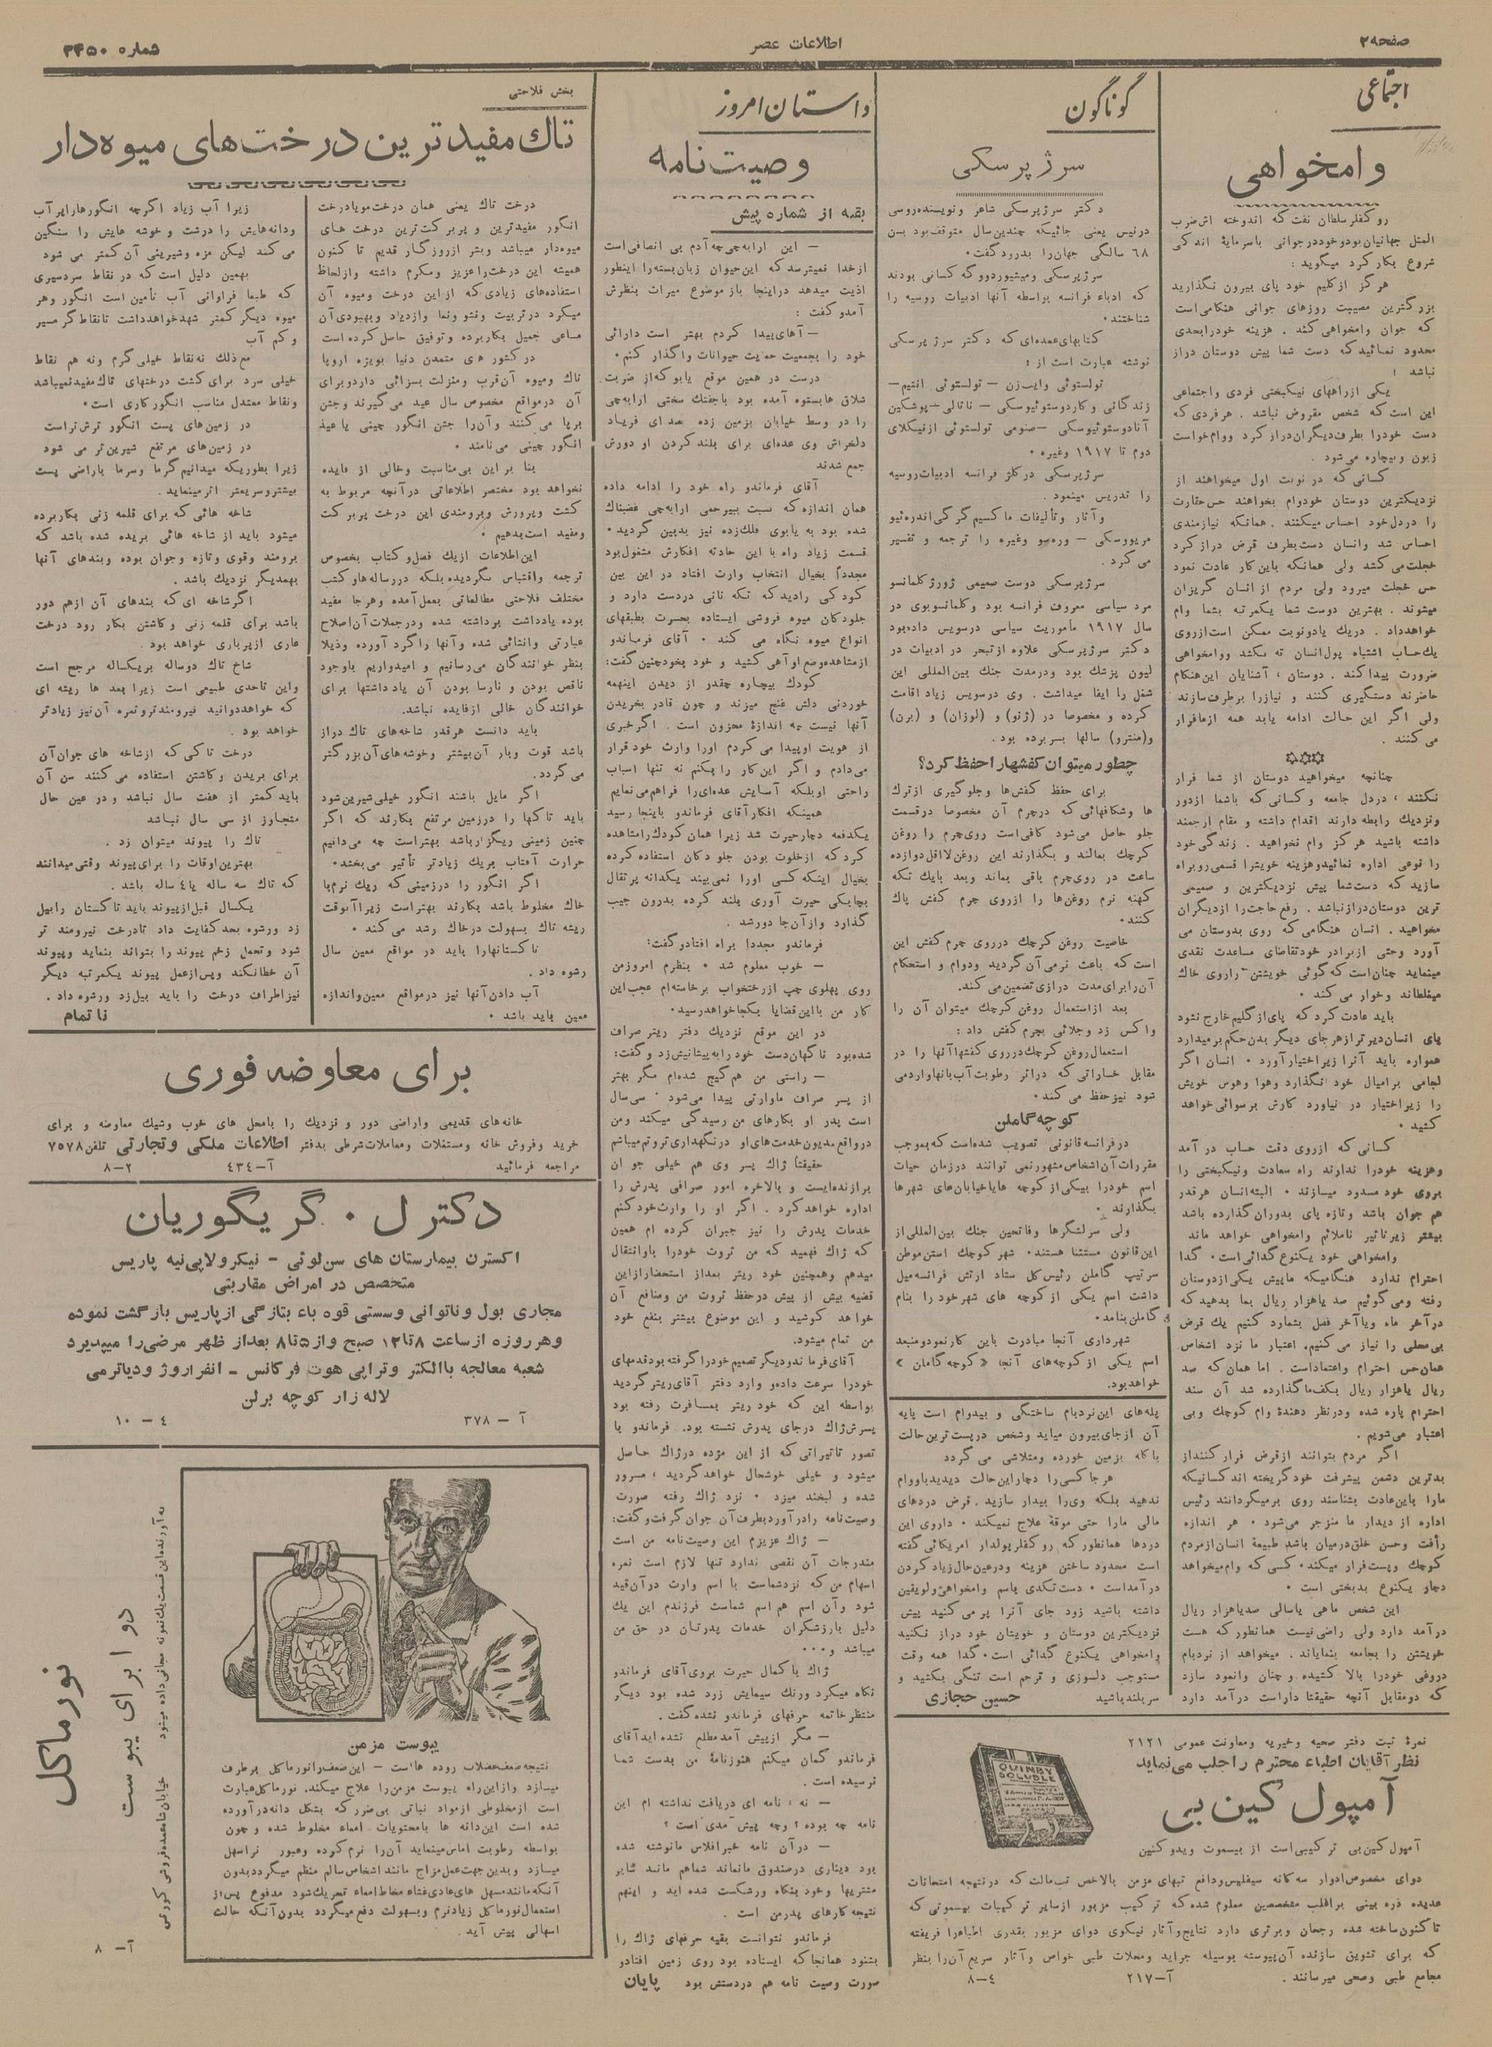 صفحه ۲
اطلاعات عصر
شماره ۳۴۵۰
اجتماعی
وامخواهی
روکفلر سلطان نفت که اندوخته اش ضرب
المثل جهانیان بود و خود در جوانی با سرمایهٔ اندکی
شروع بکار کرد میگوید :
هرگز از کلیم خود پای بیرون نگذارید
بزرگترین مصیبت روزهای جوانی هنگامی است
که جوان وامخواهی کند . هزینه خود را بحدی
محدود نمائید که دست شما پیش دوستان دراز
نباشد !
یکی از راههای نیکبختی فردی و اجتماعی
این است که شخص مقروض نباشد . هر فردی که
دست خود را بطرف دیگران دراز کرد و وام خواست
زبون و بیچاره می‌شود .
کسانی که در نوبت اول میخواهند از
نزدیکترین دوستان خود وام بخواهند حس حقارت
را در دل خود احساس میکنند . همانکه نیازمندی
احساس شد و انسان دست بطرف قرض دراز کرد
خجلت می کشد ولی همانکه باین کار عادت نمود
حس خجلت میرود ولی مردم از انسان گریزان
میشوند . بهترین دوست شما یکمرتبه بشما وام
خواهد داد . در یک یا دو نوبت ممکن است از روی
یک حساب اشتباه پول انسان ته بکشد و وامخواهی
ضرورت پیدا کند . دوستان ، آشنایان این هنگام
حاضرند دستگیری کنند و نیاز را برطرف سازند
ولی اگر این حالت ادامه یابد همه از ما فرار
می کنند .
چنانچه میخواهید دوستان از شما فرار
نکنند ، در دل جامعه و کسانی که باشما از دور
و نزدیک رابطه دارند اقدام داشته و مقام ارجمند
داشته باشید هرگز وام نخواهید . زندگی خود
را نوعی اداره نمائید و هزینه خویش را قسمی روبراه
سازید که دست شما پیش نزدیکترین و صمیمی
ترین دوستان دراز نباشد . رفع حاجت را از دیگران
مخواهید . انسان هنگامی که روی بدوستان می
آورد و حتی از برادر خود تقاضای مساعدت نقدی
مینماید چنان است که گوئی خویشتن را روی خاک
میغلطاند و خوار می کند .
باید عادت کرد که پای از گلیم خارج نشود
پای انسان دیرتر از هر جای دیگر بدن حکم بر میدارد
همواره باید آنرا زیر اختیار آورد . انسان اگر
لجامی بر امیال خود نگذارد و هوا و هوس خویش
را زیر اختیار در نیاورد کارش برسوائی خواهد
کشید .
کسانی که از روی دقت حساب در آمد
و هزینه خود را ندارند راه سعادت و نیکبختی را
بروی خود مسدود میسازند . البته انسان هر قدر
هم جوان باشد و تازه پای بدوران گذارده باشد
بیشتر زیر تاثیر ناملائم وامخواهی خواهد ماند
وامخواهی خود یکنوع گدائی است . گدا
احترام ندارد هنگامیکه ما پیش یکی از دوستان
رفته و می‌گوئیم صد یا هزار ریال بما بدهید که
در آخر ماه و یا آخر فصل بشما رد کنیم یک قرض
بی محلی را نیاز می کنیم. اعتبار ما نزد اشخاص
همان حس احترام و اعتماد است . اما همان که صد
ریال یا هزار ریال بکف ما گذارده شد آن سند
احترام پاره شده و در نظر دهندهٔ وام کوچک و بی
اعتبار می شویم .
اگر مردم بتوانند از قرض فرار کنند از
بدترین دشمن پیشرفت خود گریخته اند کسانیکه
مارا باین عادت بشناسند روی بر میگردانند رئیس
اداره از دیدار ما منزجر می شود . هر اندازه
رأفت و حسن خلق درمیان باشد طبیعة انسان از مردم
کوچک و پست فرار میکند . کسی که وام میخواهد
دچار یکنوع بدبختی است .
این شخص ماهی یا سالی صد یا هزار ریال
درآمد دارد ولی راضی نیست همانطور که هست
خویشتن را بجامعه بشناساند . میخواهد از نردبام
دروغی خود را بالا کشیده و چنان وانمود سازد
که دو مقابل آنچه حقیقتا داراست درآمد دارد
گوناگون
سرژ پرسکی
دکتر سرژ پرسکی شاعر و نویسنده روسی
در نیس یعنی جائیکه چندین سال متوقف بود بسن
۶۸ سالگی جهان را بدرود گفت .
سرژ پرسکی و میشیو ردو وگه کسانی بودند
که ادباء فرانسه بواسطه آنها ادبیات روسیه را
شناختند .
کتابهای عمده‌ای که دکتر سرژ پرسکی
نوشته عبارت است از :
تولستوئی و ایب زن – تولستوئی انتیم –
زندگانی و کار دوستوئیوسکی – ناتالی – پوشکین
آنا دوستوئیوسکی – صنومی تولستوئی از نیکلای
دوم تا ۱۹۱۷ وغیره .
سرژ پرسکی در کلژ فرانسه ادبیات روسیه
را تدریس مینمود .
و آثار و تألیفات ماکسیم گرگی اندره‌ئیو
مریووسکی – وره‌سو وغیره را ترجمه و تفسیر
می کرد .
سرژ پرسکی دوست صمیمی ژورژ کلمانسو
مرد سیاسی معروف فرانسه بود و کلمانسو بوی در
سال ۱۹۱۷ مأموریت سیاسی در سویس داده بود
دکتر سرژ پرسکی علاوه از تبحر در ادبیات در
لیون پزشک بود و در مدت جنگ بین المللی این
شغل را ایفا میداشت . وی در سویس زیاد اقامت
کرده و مخصوصا در (ژنو) و (لوزان) و (برن)
و (منترو) سالها بسر برده بود .
چطور میتوان کفشها را حفظ کرد؟
برای حفظ کفش‌ها و جلوگیری از ترک
ها و شکافهائی که در چرم آن مخصوصا در قسمت
جلو حاصل می شود کافی است روی چرم را روغن
کرچک بمالند و بگذارند این روغن لااقل دوازده
ساعت در روی چرم باقی بماند و بعد با یک تکه
کهنه نرم روغن‌ها را از روی چرم کفش پاک
کنند .
خاصیت روغن کرچک در روی چرم کفش این
است که باعث نرمی آن گردید و دوام و استحکام
آن را برای مدت درازی تضمین می کند.
بعد از استعمال روغن کرچک میتوان آن را
واکس زد و جلائی بچرم کفش داد :
استعمال روغن کرچک در روی کفشها آنها را در
مقابل خساراتی که در اثر رطوبت آب بانها وارد می
شود نیز حفظ می کند .
کوچه گاملن
در فرانسه قانونی تصویب شده است که بموجب
مقررات آن اشخاص مشهور نمی توانند در زمان حیات
اسم خود را بیکی از کوچه ها یا خیابان های شهرها
بگذارند .
ولی سر لشگرها و فاتحین جنگ بین المللی از
این قانون مستثنا هستند . شهر کوچک استن موطن
سرتیپ گاملن رئیس کل ستاد ارتش فرانسه میل
داشت اسم یکی از کوچه های شهر خود را بنام
گاملن بنامد .
شهرداری آنجا مبادرت باین کار نمود و منبعد
اسم یکی از کوچه‌های آنجا « کوچه گاملن »
خواهد بود.
پله های این نردبام ساختگی و بیدوام است پایه
آن از جای بیرون میاید و شخص در پست ترین حالت
با کله بزمین خورده و متلاشی می گردد
هر جا کسی را دچار این حالت دیدید باو وام
ندهید بلکه وی را بیدار سازید . قرض دردهای
مالی مارا حتی موقة علاج نمیکند . داروی این
دردها همانطور که روکفلر پولدار امریکائی گفته
است محدود ساختن هزینه و در عین حال زیاد کردن
درآمد است . دست تکدی باسم وامخواهی و لوبقین
داشته باشید زود جای آنرا پر می کنید پیش
نزدیکترین دوستان و خویشان خود دراز نکنید
وامخواهی یکنوع گدائی است . گدا همه وقت
مستوجب دلسوزی و ترحم است تنگی بکشید و
سربلند باشید
حسین حجازی
داستان امروز
وصیت نامه
بقیه از شماره پیش
– این ارابه‌چی چه آدم بی انصافی است
از خدا نمیترسد که این حیوان زبان بسته را اینطور
اذیت میدهد در اینجا باز موضوع میراث بنظرش
آمد و گفت :
– آهای پیدا کردم بهتر است دارائی
خود را بجمعیت حمایت حیوانات واگذار کنم .
درست در همین موقع یابو که از ضربت
شلاق ها بستوه آمده بود باجفتک سختی ارابه‌چی
را در وسط خیابان بزمین زده صدای فریاد
دلخراش وی عده‌ای برای بلند کردن او دورش
جمع شدند
آقای فرماندو راه خود را ادامه داده
همان اندازه که نسبت ببیرحمی ارابه‌چی غضبناک
شده بود به یابوی فلک زده نیز بدبین گردید .
قسمت زیاد راه با این حادثه افکارش مشغول بود
مجدداً بخیال انتخاب وارث افتاد در این بین
کودکی را دید که تکه نانی در دست دارد و
جلو دکان میوه فروشی ایستاده بحسرت بطبقهای
انواع میوه نگاه می کند . آقای فرماندو
از مشاهده وضع او آهی کشید و خود بخود چنین گفت:
کودک بیچاره چقدر از دیدن اینهمه
خوردنی دلش غنج میزند و چون قادر بخریدن
آنها نیست چه اندازهٔ محزون است . اگر خبری
از هویت او پیدا می کردم اورا وارث خود قرار
می دادم و اگر این کار را بکنم نه تنها اسباب
راحتی او بلکه آسایش عده‌ای را فراهم می نمایم
همینکه افکار آقای فرماندو باینجا رسید
یکدفعه دچار حیرت شد زیرا همان کودک را مشاهده
کرد که از خلوت بودن جلو دکان استفاده کرده
بخیال اینکه کسی اورا نمی بیند یکدانه پرتقال
بچابکی حیرت آوری بلند کرده بدرون جیب
گذارد و از آن جا دور شد .
فرماندو مجدداً براه افتاد و گفت:
– خوب معلوم شد . بنظرم امروز من
روی پهلوی چپ از رختخواب برخاسته ام عجب این
کار من با این قضایا بکجا خواهد رسید .
در این موقع نزدیک دفتر ریتر صراف
شده بود ناگهان دست خود را به پیشانیش زد و گفت:
– راستی من هم گیج شده‌ام مگر بهتر
از پسر صراف ما وارثی پیدا می شود . سی سال
است پدر او بکارهای من رسیدگی میکند و من
در واقع مدیون خدمت‌های او در نگهداری ثروتم میباشم
حقیقتاً ژاک پسر وی هم خیلی جوان
برازنده‌ایست و بالاخره امور صرافی پدرش را
اداره خواهد کرد . اگر او را وارث خود کنم
خدمات پدرش را نیز جبران کرده ام همین
که ژاک فهمید که من ثروت خود را باو انتقال
میدهم و همچنین خود ریتر بعد از استحضار از این
قضیه بیش از پیش در حفظ ثروت من و منافع آن
خواهد کوشید و این موضوع بیشتر بنفع خود
من تمام میشود.
آقای فرماندو دیگر تصمیم خود را گرفته بود قدمهای
خود را سرعت داده وارد دفتر آقای ریتر گردید
بواسطه این که خود ریتر بمسافرت رفته بود
پسرش ژاک در جای پدرش نشسته بود. فرماندو با
تصور تاثیراتی که از این مژده در ژاک حاصل
میشود و خیلی خوشحال خواهد گردید ، مسرور
شده و لبخند میزد . نزد ژاک رفته صورت
وصیت نامه را درآورد بطرف آن جوان گرفت و گفت:
– ژاک عزیزم این وصیت نامه من است
مندرجات آن نقصی ندارد تنها لازم است نمره
اسهام من که نزد شماست با اسم وارث در آن قید
شود و آن اسم هم اسم شماست فرزندم این یک
دلیل بارز شکران خدمات پدرتان در حق من
میباشد و . . .
ژاک با کمال حیرت بروی آقای فرماندو
نگاه میکرد و رنگ سیمایش زرد شده بود دیگر
منتظر خاتمه حرفهای فرماندو نشده گفت .
– مگر از پیش آمد مطلع نشده اید آقای
فرماندو گمان میکنم هنوز نامهٔ من بدست شما
نرسیده است .
– نه ، نامه ای دریافت نداشته ام این
نامه چه بوده ؟ و چه پیش آمدی است ؟
– در آن نامه خبر افلاس ما نوشته شده
بود دیناری در صندوق ما نماند شما هم مانند سایر
مشتریها و خود بنگاه ورشکست شده اید و اینهم
نتیجه کارهای پدر من است .
فرماندو نتوانست بقیه حرفهای ژاک را
بشنود همانجا که ایستاده بود روی زمین افتاد و
صورت وصیت نامه هم در دستش بود
پایان
بخش فلاحتی
تاک مفیدترین درخت‌های میوه‌دار
درخت تاک یعنی همان درخت مو یا درخت
انگور مفیدترین و پر برکت ترین درخت های
میوه‌دار میباشد و بشر از روزگار قدیم تا کنون
همیشه این درخت را عزیز و مکرم داشته و از لحاظ
استفاده‌های زیادی که از این درخت و میوه آن
میکرد در تربیت و نشو و نما و ازدیاد و بهبودی آن
مساعی جمیل بکار برده و توفیق حاصل کرده است
در کشور های متمدن دنیا بویژه اروپا
تاک و میوه آن قرب و منزلت بسزائی دارد و برای
آن در مواقع مخصوص سال عید می گیرند و جشن
برپا می کنند و آن را جشن انگور چینی یا عید
انگور چینی می نامند .
بنا بر این بی مناسبت و خالی از فایده
نخواهد بود مختصر اطلاعاتی در آنچه مربوط به
کشت و پرورش و برومندی این درخت پر برکت
و مفید است بدهیم :
این اطلاعات از یک فصل و کتاب بخصوص
ترجمه و اقتباس نگردیده بلکه در رساله ها و کتب
مختلف فلاحتی مطالعاتی بعمل آمده و هر جا مفید
بوده یادداشت برداشته شده و در جملات آن اصلاح
عبارتی و انشائی شده و آنها را گرد آورده و ذیلا
بنظر خوانندگان می رسانیم و امیدواریم باوجود
ناقص بودن و نارسا بودن آن یادداشتها برای
خوانندگان خالی از فایده نباشد.
باید دانست هر قدر شاخه های تاک دراز
باشد قوت و بار آن بیشتر و خوشه های آن بزرگتر
می گردد.
اگر مایل باشند انگور خیلی شیرین شود
باید تاکها را در زمین مرتفع بکارند که اگر
چنین زمینی ریگزار باشد بهتر است چه می دانیم
حرارت آفتاب بریک زیادتر تأثیر می بخشد .
اگر انگور را در زمینی که ریک نرم با
خاک مخلوط باشد بکارند بهتر است زیرا آنوقت
ریشه تاک بسهولت در خاک رشد می کند .
تاکستانها را باید در مواقع معین سال
رشوه داد .
آب دادن آنها نیز در مواقع معین و اندازه
معین باید باشد .
زیرا آب زیاد اگرچه انگورها را پر آب
و دانه‌هایش را درشت و خوشه هایش را سنگین
می کند لیکن مزه و شیرینی آن کمتر می شود
بهمین دلیل است که در نقاط سردسیری
که طبعا فراوانی آب تأمین است انگور و هر
میوه دیگر کمتر شهد خواهد داشت تا نقاط گرمسیر
و کم آب
مع ذلک نه نقاط خیلی گرم و نه هم نقاط
خیلی سرد برای کشت درختهای تاک مفید نمیباشد
و نقاط معتدل مناسب انگور کاری است .
در زمین های پست انگور ترش تر است
در زمین های مرتفع شیرین تر می شود
زیرا بطوریکه میدانیم گرما و سرما باراضی پست
بیشتر و سریعتر اثر مینماید .
شاخه هائی که برای قلمه زنی بکار برده
میشود باید از شاخه هائی بریده شده باشد که
برومند و قوی و تازه و جوان بوده و بندهای آنها
بهمدیگر نزدیک باشد .
اگر شاخه ای که بندهای آن از هم دور
باشد برای قلمه زنی و کاشتن بکار رود درخت
عاری از پرباری خواهد بود .
شاخ تاک دوساله بر یکساله مرجح است
و این تا حدی طبیعی است زیرا بعد ها ریشه ای
که خواهد دوانید نیرومندتر و ثمره آن نیز زیادتر
خواهد بود .
درخت تاکی که از شاخه های جوان آن
برای بریدن و کاشتن استفاده می کنند سن آن
باید کمتر از هفت سال نباشد و در عین حال
متجاوز از سی سال نباشد
تاک را پیوند میتوان زد .
بهترین اوقات را برای پیوند وقتی میدانند
که تاک سه ساله یا ۴ ساله باشد .
یکسال قبل از پیوند باید تاکستان را بیل
زد و رشوه بحد کفایت داد تا درخت نیرومند تر
شود و تحمل زخم پیوند را بتواند بنماید و پیوند
آن خطا نکند و پس از عمل پیوند یکمرتبه دیگر
نیز اطراف درخت را باید بیل زد و رشوه داد .
ناتمام
برای معاوضه فوری
خانه های قدیمی و اراضی دور و نزدیک را بامحل های خوب و شیک معاوضه و برای
خرید و فروش خانه و مستغلات و معاملات شرطی بدفتر اطلاعات ملکی و تجارتی تلفن ۷۵۷۸
مراجعه فرمائید
آ–۴۳۴
۲–۸
دکتر ل . گریگوریان
اکسترن بیمارستان های سن لوئی – نیکرولاپی تیه پاریس
متخصص در امراض مقاربتی
مجاری بول و ناتوانی و سستی قوه باء بتازگی از پاریس بازگشت نموده
و هر روزه از ساعت ۸ تا ۱۲ صبح و از ۵ تا ۸ بعد از ظهر مرضی را میپذیرد
شعبه معالجه با الکتر و تراپی هوت فرکانس – انفراروژ و دیاترمی
لاله زار کوچه برلن
آ – ۳۷۸
۴ – ۱۰
یبوست مزمن
نتیجه ضعف عضلات روده هاست – این ضعف را نورماکل برطرف
میسازد و از این راه یبوست مزمن را علاج میکند. نورماکل عبارت
است از مخلوطی از مواد نباتی بی ضرر که بشکل دانه در آورده
شده است این دانه ها بامحتویات امعاء مخلوط شده و چون
بواسطه رطوبت اماس مینماید آن را نرم کرده و عبور آنرا سهل
میسازد و بدین جهت عمل مزاج مانند اشخاص سالم منظم میگردد بدون
آنکه مانند مسهل های عادی غشاء مخاط امعاء تحریک شود مدفوع پس از
استعمال نورماکل زیاد نرم و بسهولت دفع میگردد بدون آنکه حالت
اسهالی پیش آید .
نورماکل
دوا برای یبوست
به آورنده این قسمت یک نمونه مجانی داده میشود
آ– ۸
نمرهٔ ثبت دفتر صحیه و خیریه و معاونت عمومی ۲۱۲۱
نظر آقایان اطباء محترم را جلب می نماید
آمپول کین بی
آمپول کین بی ترکیبی است از بیسموت و یدو کنین
QUINBY
SOLUBLE
دوای مخصوص ادوار سه گانه سیفلیس و دافع تبهای مزمن بالاخص تب مالت که در نتیجه امتحانات
عدیده ذره بینی بر اغلب متخصصین معلوم شده که ترکیب مزبور از سایر ترکیبات بیسموتی که
تاکنون ساخته شده رجحان و برتری دارد نتایج و آثار نیکوی دوای مزبور بقدری اطباء را فریفته
که برای تشویق سازنده آن پیوسته بوسیله جراید و مجلات طبی خواص و آثار سریع آن را بنظر
مجامع طبی و صحی میرسانند .
آ–۲۱۷
۴–۸